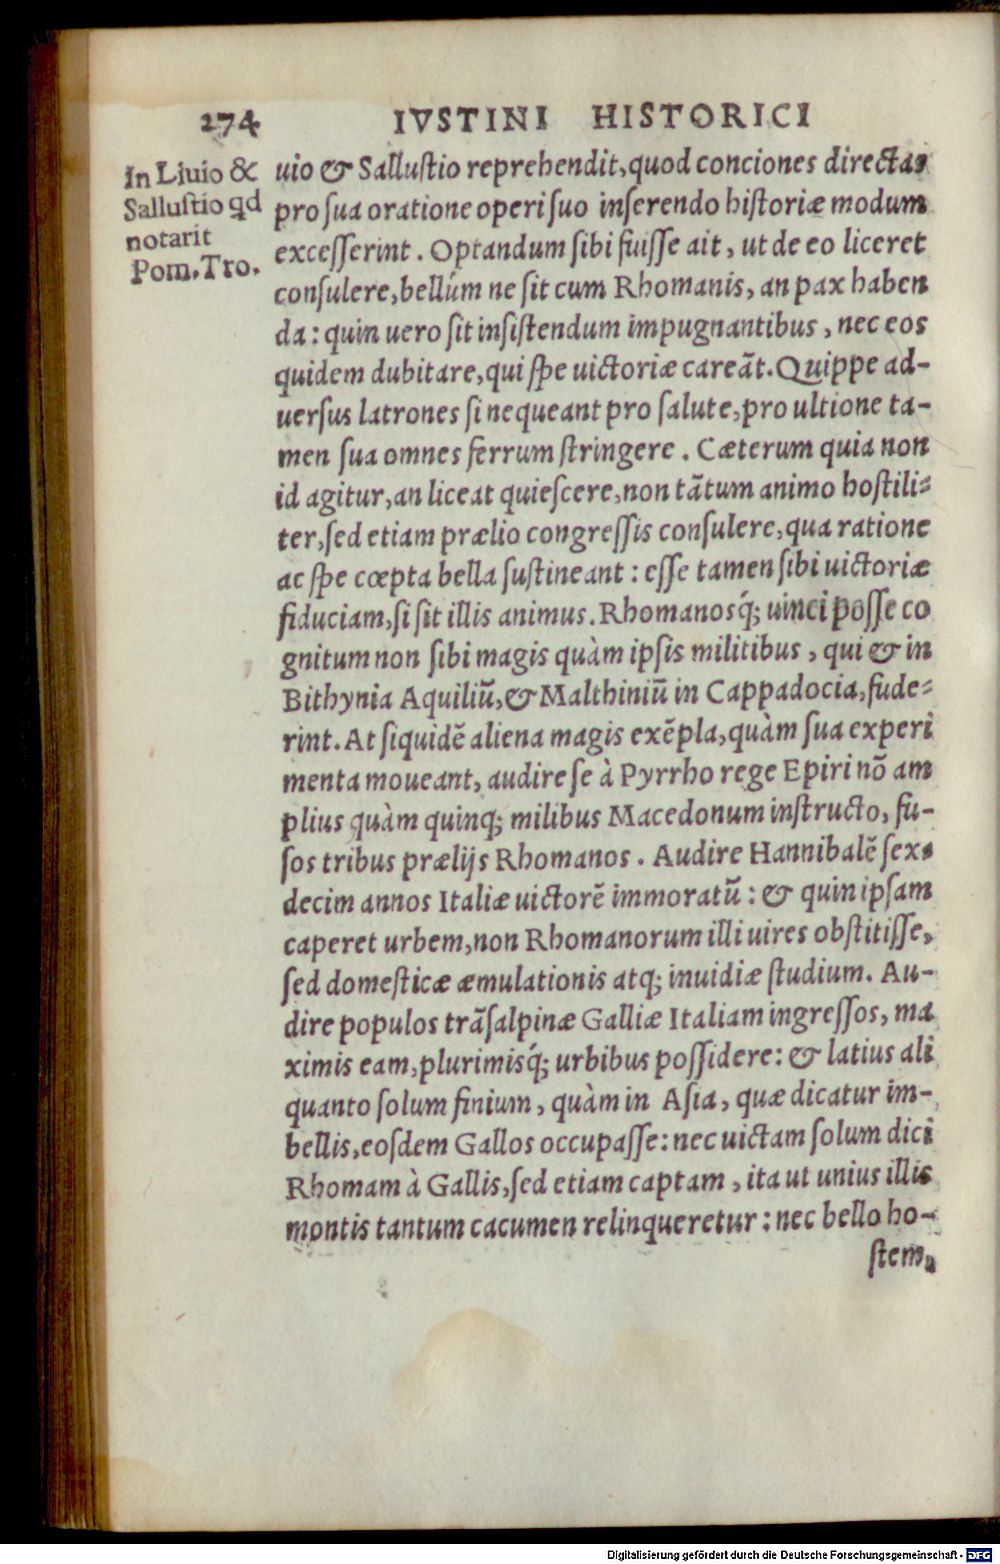 274 IVSTINI HISTORICI
In Liuio &
Sallustio qd
notarit
Pom. Tro.
uio & Sallustio reprehendit, quod conciones directas
pro sua oratione operi suo inserendo historiæ modum
excesserint. Optandum sibi fuisse ait, ut de eo liceret
consulere, bellúm ne sit cum Rhomanis, an pax haben
da: quin uero sit insistendum impugnantibus, nec eos
quidem dubitare, qui spe uictoriæ careãt. Quippe ad-
uersus latrones si nequeant pro salute, pro ultione ta-
men sua omnes ferrum stringere. Cæterum quia non
id agitur, an liceat quiescere, non tãtum animo hostili-
ter, sed etiam prælio congressis consulere, qua ratione
ac spe cœpta bella sustineant: esse tamen sibi uictoriæ
fiduciam, si sit illis animus. Rhomanosq́; uinci posse co
gnitum non sibi magis quàm ipsis militibus, qui & in
Bithynia Aquiliũ, & Malthiniũ in Cappadocia, fude-
rint. At siquidẽ aliena magis exẽpla, quàm sua experi
menta moueant, audire se à Pyrrho rege Epiri nõ am
plius quàm quinq; milibus Macedonum instructo, fu-
sos tribus prælijs Rhomanos. Audire Hannibalẽ sex-
decim annos Italiæ uictorẽ immoratũ: & quin ipsam
caperet urbem, non Rhomanorum illi uires obstitisse,
sed domesticæ æmulationis atq; inuidiæ studium. Au-
dire populos trãsalpinæ Galliæ Italiam ingressos, ma
ximis eam, plurimisq́; urbibus possidere: & latius ali
quanto solum finium, quàm in Asia, quæ dicatur im-
bellis, eosdem Gallos occupasse: nec uictam solum dici
Rhomam à Gallis, sed etiam captam, ita ut unius illis
montis tantum cacumen relinqueretur: nec bello ho-
stem,
Digitalisierung gefördert durch die Deutsche Forschungsgemeinschaft - DFG